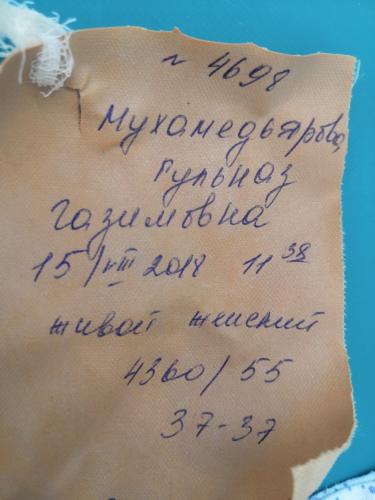 № 4698
Мухамедьярова
Гульназ
Газимовна
15/VIII 2018 11 38
живой женский
4360/55
37-37